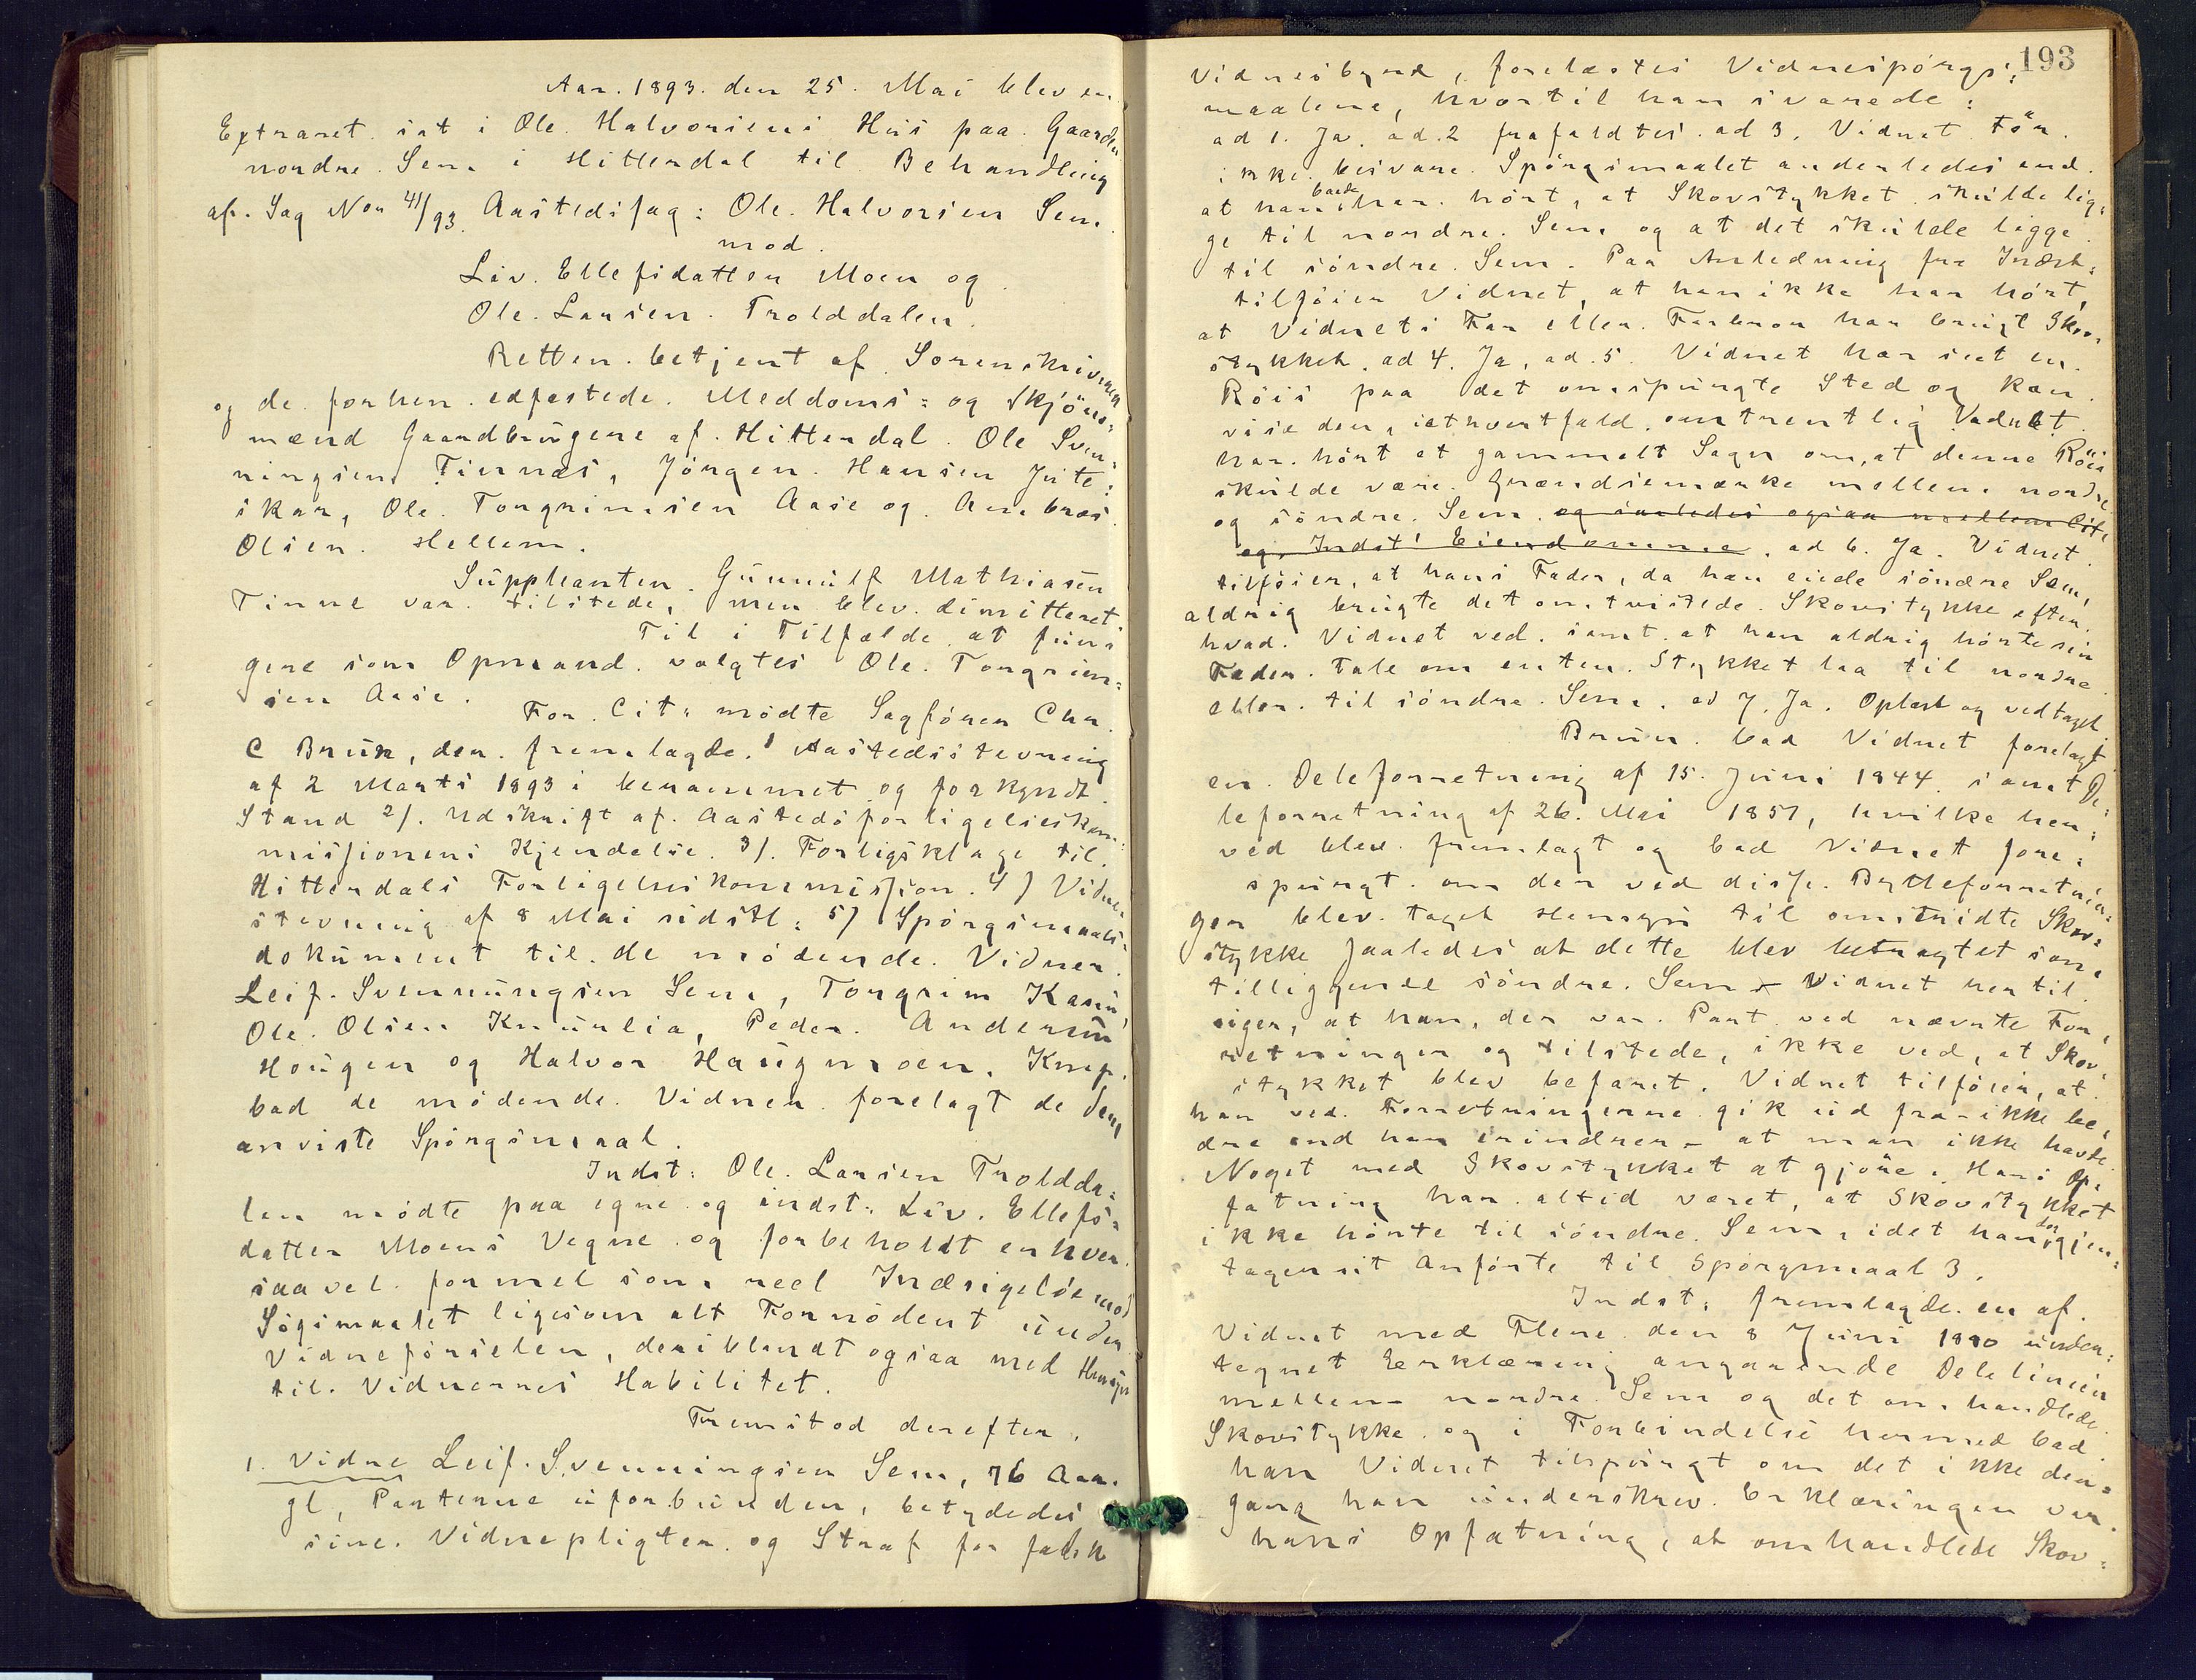 Aar 1893 den 25 Mai blev en
Extraret sat i Ole Halvorsens Hus paa Gaarden
nordre Sem i Hitterdal til Behandling
af Sag Nor 41/93 Aastedssag: Ole Halvorsen Sem
mod
Liv Ellefsdatter Moen og
Ole Larsen Trolddalen.
Retten betjent af Sorenskriveren
og de forhen edfæstede Meddoms= og Skjöns=
mænd Gaardbrugere af Hitterdal Ole Sven=
ningsen Tinnæs, Jörgen Hansen Jute=
skar, Ole Torgrimsen Aase og Ambros
Olsen Hellem.
Suppleanten Gunnulf Mathiasen
Tinne var tilstede, men blev dimitteret
Til i Tilfælde at fun=
gere som Opmand valgtes Ole Torgrim=
sen Aase.
For Cit: mødte Sagfører Chr.
C Bruun, der fremlagde 1 Aastedsstevning
af 2 Marts 1893 i berammet og forkyndt
Stand 2/. Udskrift af Aastedsforligelseskom=
missionens Kjendelse. 3/. Forligsklage til
Hitterdals Forligelseskommission. 4/ Vidne=
stevning af 8 Mai sidstl: 5/ Spörgsmaals=
dokument til de mödende Vidner
Leif Svennungsen Sem, Torgrim Kasin,
Ole Olsen Knurlia, Peder Andersen
Hougen og Halvor Haugmoen. Komp.
bad de mödende Vidner forelagt de dem
anviste Spörgsmaal.
Indst: Ole Larsen Troldda=
len mödte paa egne og indst: Liv Ellefs=
datter Moens Vegne og forbeholdt enhver
saavel formel som reel Indsigelse mod
Sögsmaalet ligesom alt Fornödent under
Vidneförselen, deriblandt ogsaa med Hensyn
til Vidnernes Habilitet.
Fremstod derefter
1. Vidne Leif Svenningsen Sem, 76 Aar
gl, Parterne uforbunden, betydedes
sine Vidnepligter og Straf for falsk
193
Vidnesbyrd, forelæstes Vidnespörgs=
maalene, hvortil han svarede:
ad 1. Ja. ad 2 frafaldtes. ad 3. Vidnet tör
ikke besvare Spörgsmaalet anderledes end
at han baade har hört, at Skovstykket skulde lig=
ge til nordre Sem og at det skulde ligge
til söndre Sem. Paa Anledning fra Indst:
tilföier Vidnet, at han ikke har hört,
at Vidnets Far eller Farbror har brugt Skov=
stykket. ad 4. Ja, ad 5. Vidnet har seet en
Röis paa det omspurgte Sted og kan
vise den, iethvertfald omtrentlig. Vidnet
har hört et gammelt Sagn om, at denne Röis
skulde være Grændsemærke mellem nordre
og söndre Sem og saaledes ogsaa mellem Cit:
og Indst: Eiendomme. ad 6. Ja. Vidnet
tilföier, at hans Fader, da han eiede söndre Sem,
aldrig brugte det omtvistede Skovstykke efter
hvad Vidnet ved samt at han aldrig hörte sin
Fader tale om enten Stykket laa til nordre
eller til söndre Sem. ad 7. Ja. Oplæst og vedtaget
Bruun bad Vidnet forelagt
en Deleforretning af 15. Juni 1844 samt De=
leforretning af 26. Mai 1851, hvilke her=
ved blev fremlagt og bad Vidnet fore=
spurgt om der ved disse Bytteforretnin=
ger blev taget Hensyn til omstridte Skov=
stykke saaledes at dette blev betragtet som
tilliggende söndre Sem. Vidnet hertil
siger, at han, der var Part ved nævnte For=
retninger og tilstede, ikke ved, at Skov=
stykket blev befaret. Vidnet tilföier, at
han ved Forretningerne gik ud fra – ikke be=
dre end han erindrer – at man ikke havde
Noget med Skovstykket at gjöre. Hans Op=
fatning har altid været, at Skovstykket
ikke hörte til söndre Sem, idet han dog gjen=
tager sit Anförte til Spörgsmaal 3.
Indst: fremlagde en af
Vidnet med Flere den 8 Juni 1890 under=
tegnet Erklæring angaaende Delelinien
mellem nordre Sem og det omhandlede
Skovstykke og i Forbindelse hermed bad
han Vidnet tilspurgt om det ikke den=
gang han underskrev Erklæringen var
hans Opfatning, at omhandlede Skov=